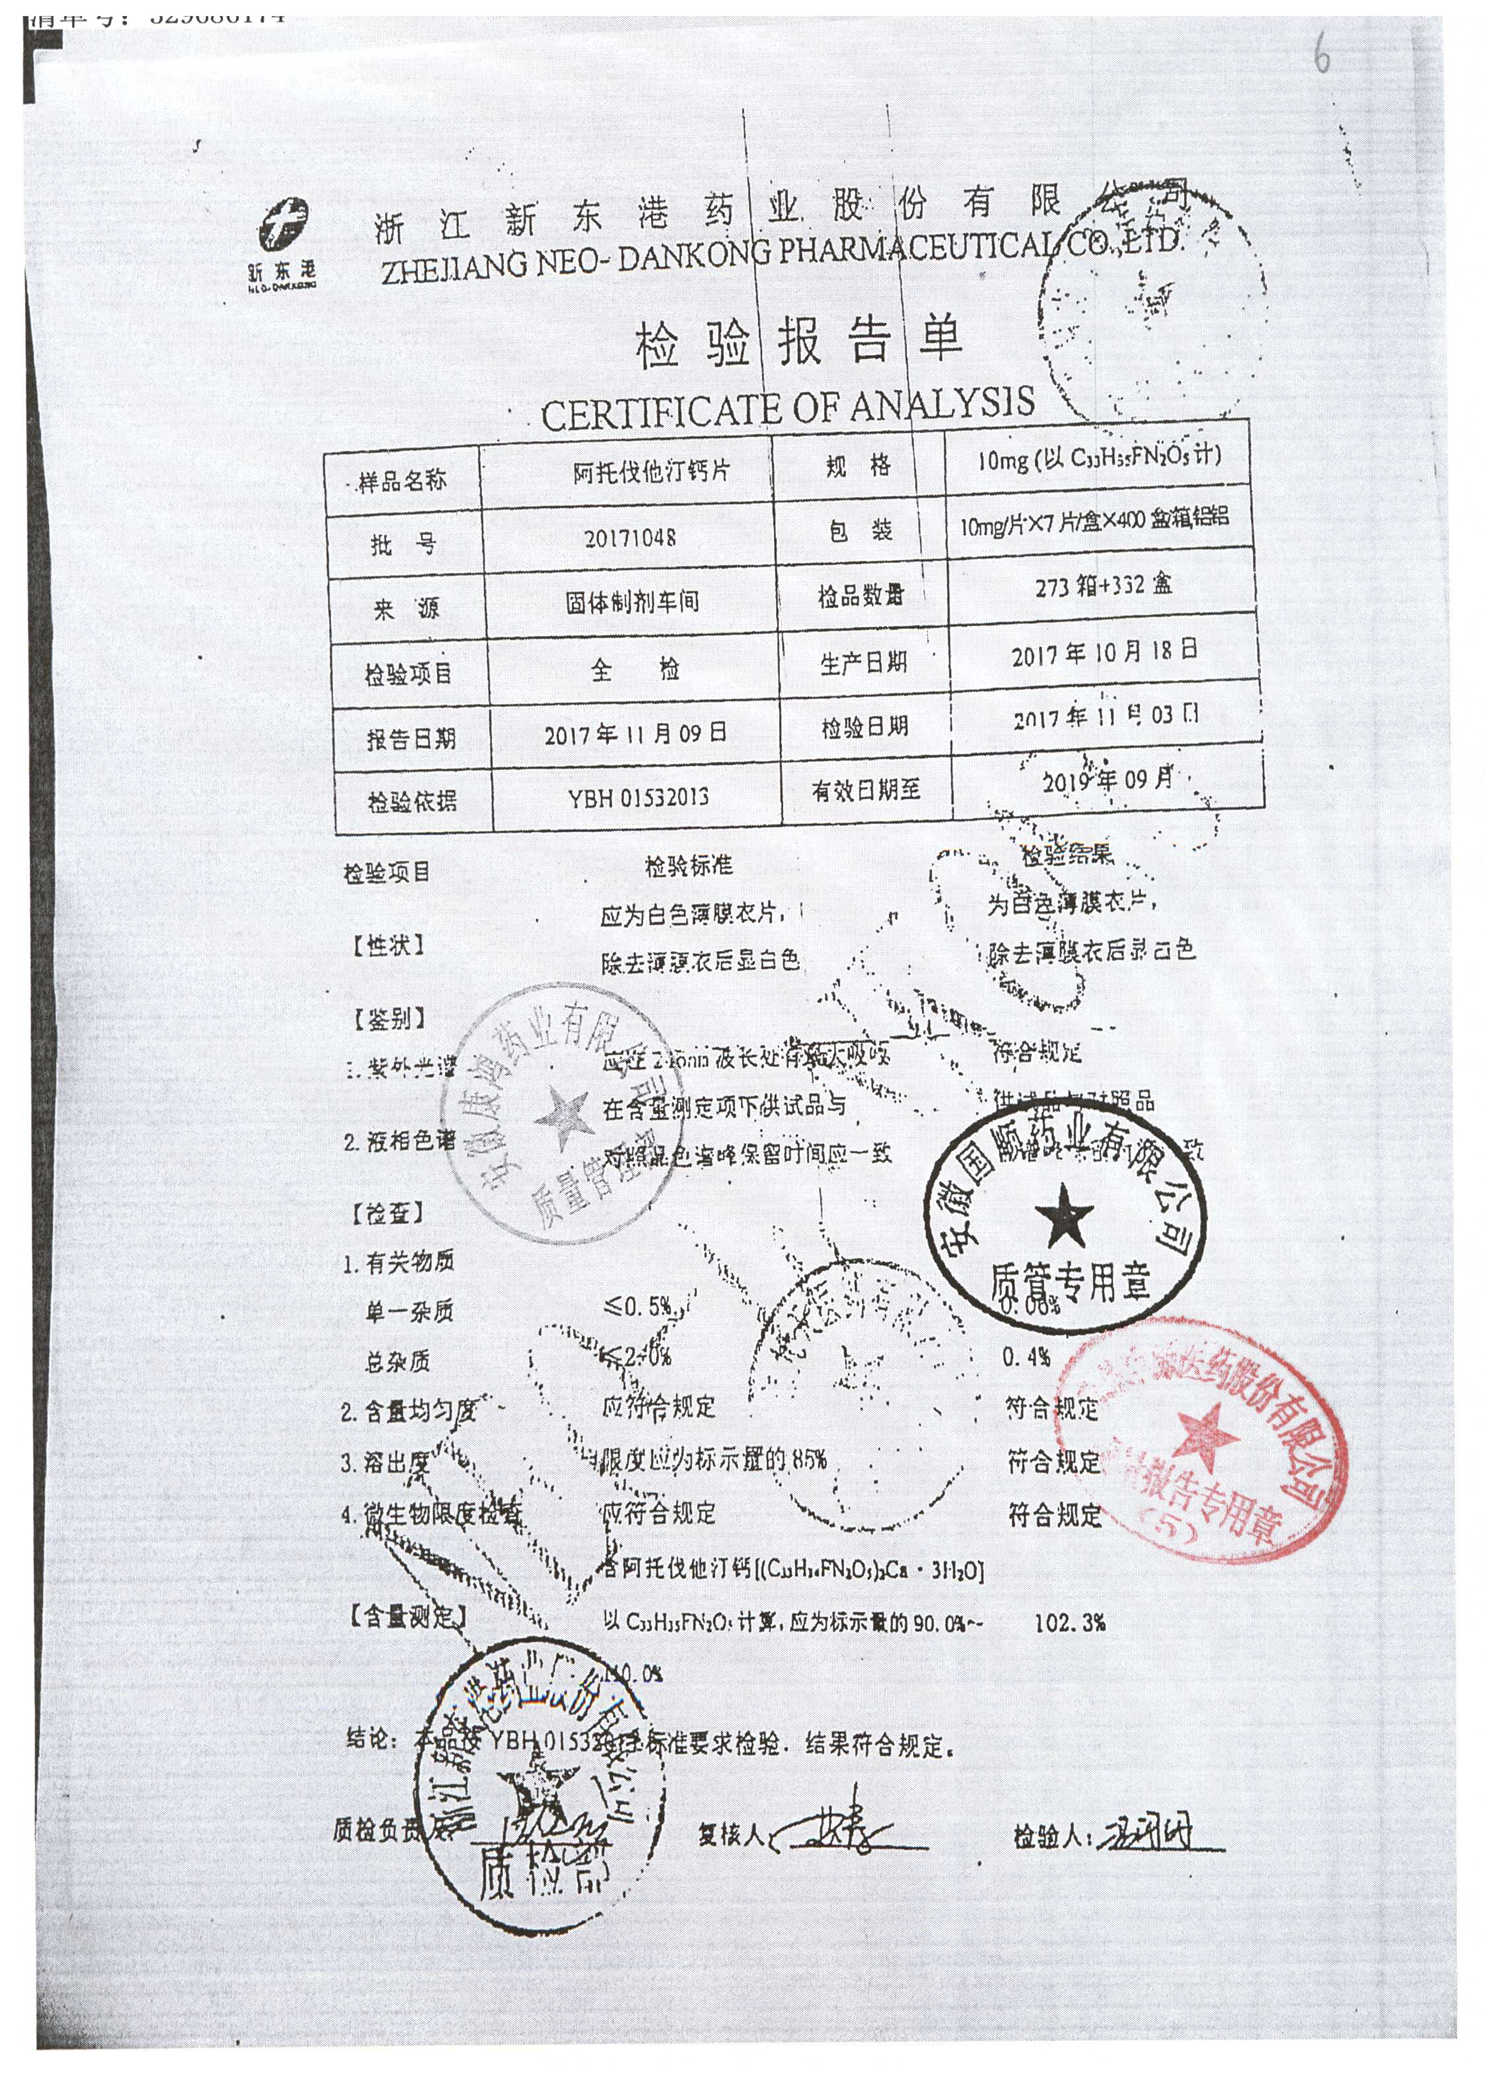 6
新东港
NEO-DANKONG
浙江新东港药业股份有限公司
ZHEJIANG NEO-DANKONG PHARMACEUTICAL CO.,LTD.
检验报告单
CERTIFICATE OF ANALYSIS
样品名称 阿托伐他汀钙片 规格 10mg (以 C₃₃H₃₅FN₂O₅ 计)
批号 20171048 包装 10mg/片×7片/盒×400盒/箱,铝铝
来源 固体制剂车间 检品数量 273 箱+332 盒
检验项目 全检 生产日期 2017 年 10 月 18 日
报告日期 2017 年 11 月 09 日 检验日期 2017 年 11 月 03 日
检验依据 YBH 01532013 有效日期至 2019 年 09 月
检验项目 检验标准 检验结果
应为白色薄膜衣片, 为白色薄膜衣片,
【性状】
除去薄膜衣后显白色 除去薄膜衣后显白色
【鉴别】
1. 紫外光谱 应在 246nm 波长处有最大吸收 符合规定
在含量测定项下供试品与 供试品与对照品
2. 液相色谱
对照品色谱峰保留时间应一致 致
【检查】
1. 有关物质
单一杂质 ≤0.5% 0.06%
总杂质 ≤2.0% 0.4%
2. 含量均匀度 应符合规定 符合规定
3. 溶出度 限度应为标示量的 85% 符合规定
4. 微生物限度检查 应符合规定 符合规定
含阿托伐他汀钙[(C₃₃H₃₄FN₂O₅)₂Ca·3H₂O]
【含量测定】 以 C₃₃H₃₅FN₂O₅ 计算, 应为标示量的 90.0%~ 102.3%
110.0%
结论: 本品按 YBH 01532013 标准要求检验. 结果符合规定。
质检负责人: 复核人: 检验人:
安徽康鸿药业有限公司
质量管理部
安徽国顺药业有限公司
质管专用章
医药股份有限公司
报告专用章
(5)
浙江新东港药业股份有限公司
质检部